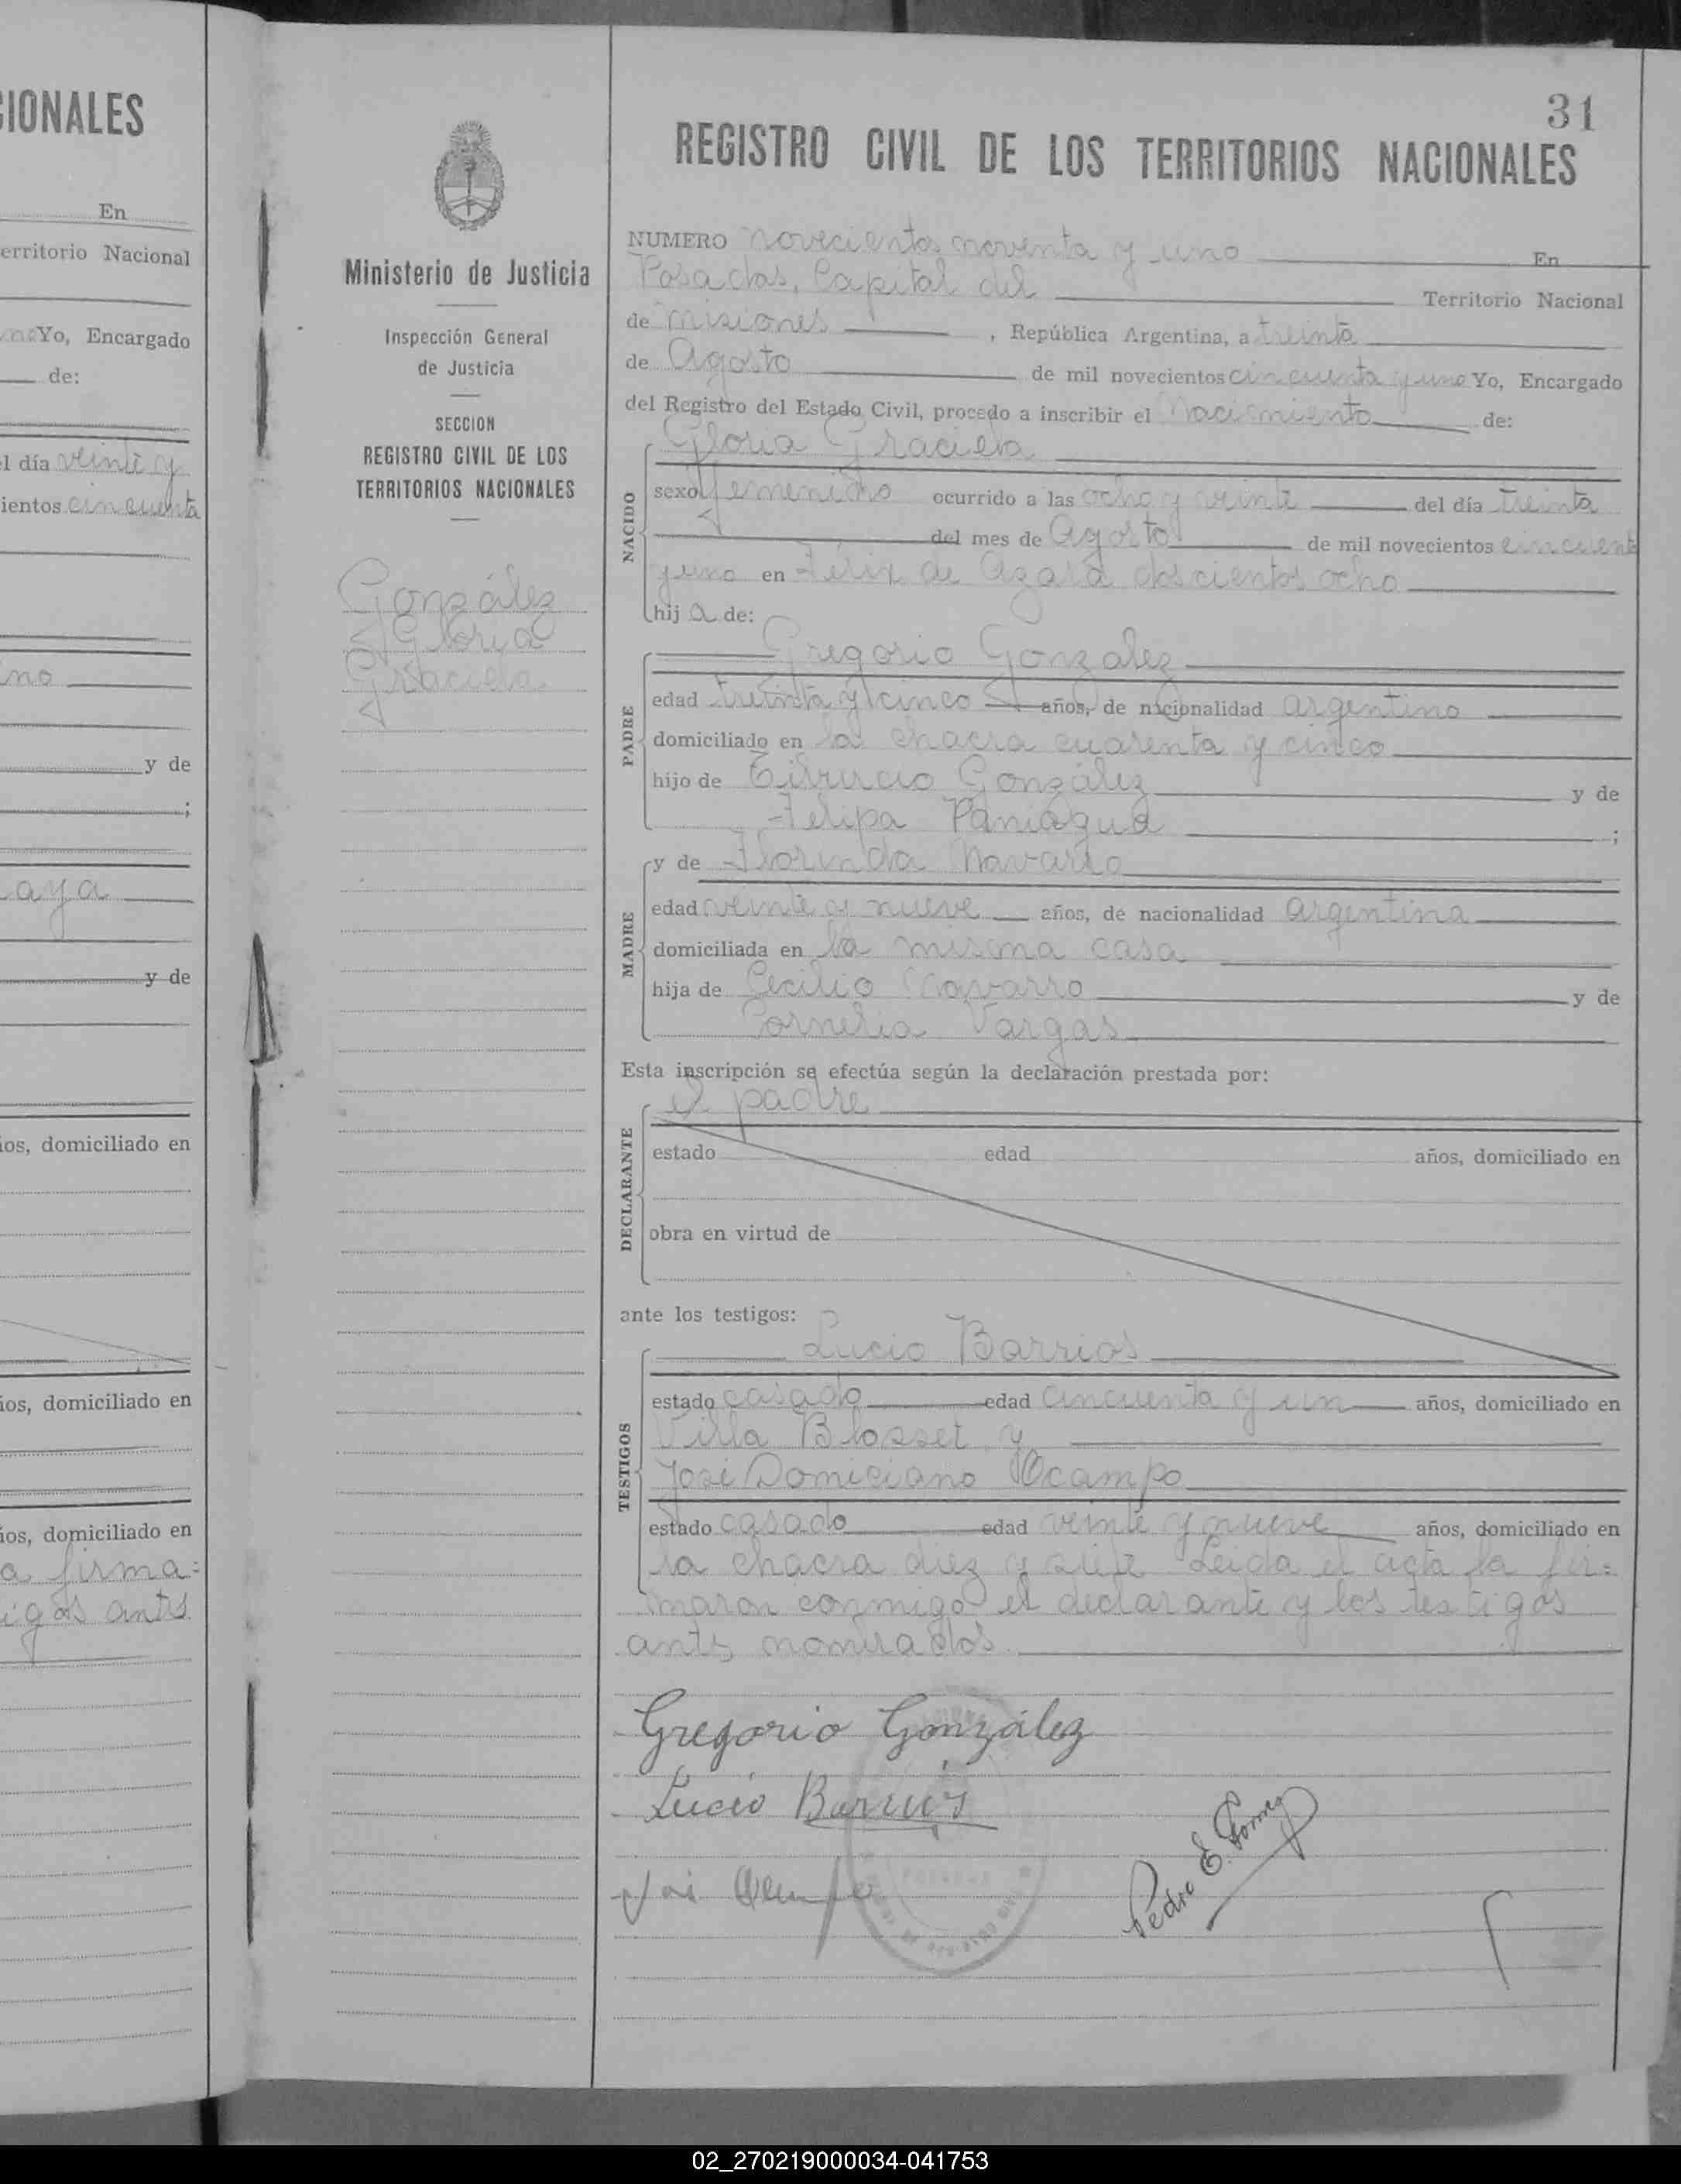 CIONALES
En
erritorio Nacional
Yo, Encargado
de:
l día veinte y
ientos cincuenta
no
y de
;
aya
y de
ios, domiciliado en
ios, domiciliado en
ios, domiciliado en
a firma=
igos antes
Ministerio de Justicia
Inspección General
de Justicia
SECCION
REGISTRO CIVIL DE LOS
TERRITORIOS NACIONALES
González
Gloria
Graciela
31
REGISTRO CIVIL DE LOS TERRITORIOS NACIONALES
NUMERO novecientos noventa y uno En
Posadas, Capital del Territorio Nacional
de Misiones, República Argentina, a treinta
de Agosto de mil novecientos cincuenta y uno Yo, Encargado
del Registro del Estado Civil, procedo a inscribir el Nacimiento de:
Gloria Graciela
NACIDO
sexo femenino ocurrido a las ocho y veinte del día treinta
del mes de Agosto de mil novecientos cincuenta
y uno en Félix de Azara doscientos ocho
hij a de:
Gregorio Gonzalez
PADRE
edad treinta y cinco años, de nacionalidad argentino
domiciliado en la chacra cuarenta y cinco
hijo de Tiburcio González y de
Felipa Paniagua ;
y de Florinda Navarro
MADRE
edad veinte y nueve años, de nacionalidad argentina
domiciliada en la misma casa
hija de Cecilio Navarro y de
Cornelia Vargas
Esta inscripción se efectúa según la declaración prestada por:
el padre
DECLARANTE
estado edad años, domiciliado en
obra en virtud de
ante los testigos:
Lucio Barrios
TESTIGOS
estado casado edad cincuenta y un años, domiciliado en
Villa Blosset y
José Domiciano Ocampo
estado casado edad veinte y nueve años, domiciliado en
la chacra diez y siete Leida el acta la fir=
maron conmigo el declarante y los testigos
antes nombrados
Gregorio González
Lucio Barrios
José Ocampo
Pedro E.
POSADAS
02_270219000034-041753